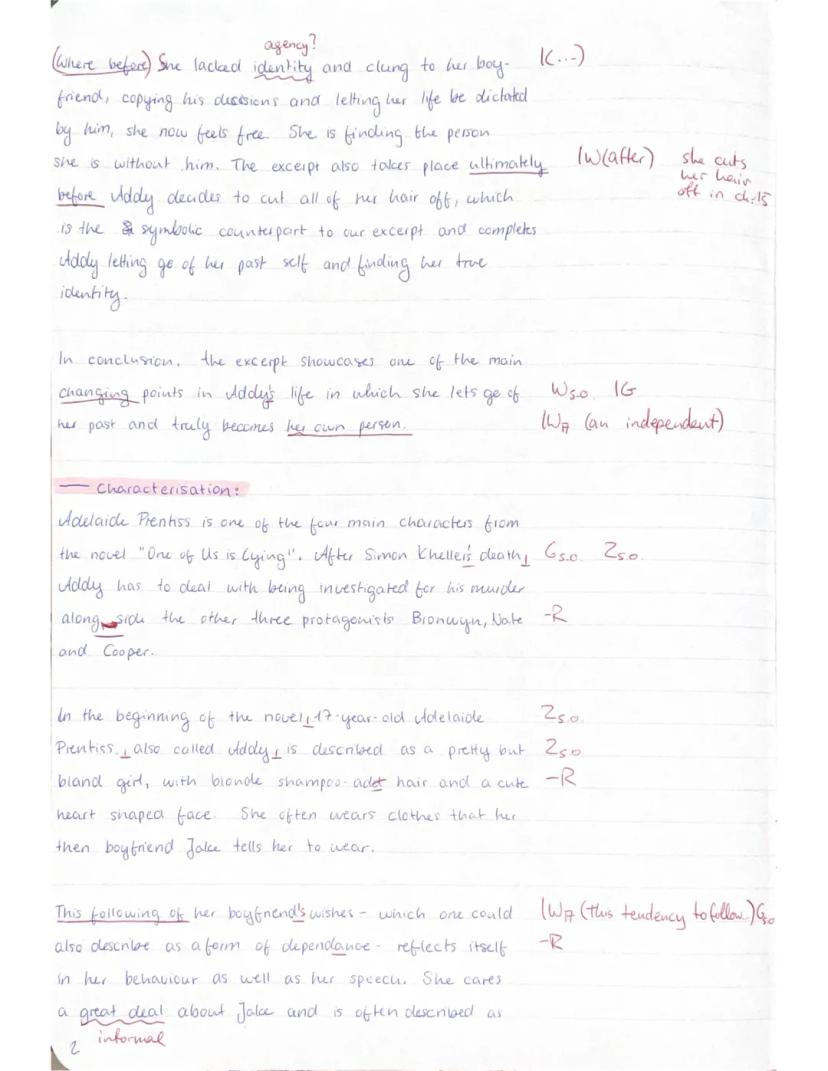 agency?
(Where before) She lacked identity and clung to her boy- |(...)
friend, copying his decisions and letting her life be dictated
by him, she now feels free. She is finding the person
she is without him. The excerpt also takes place ultimately |W(after) she cuts
her hair
off in ch.15
before Addy decides to cut all of her hair off, which
is the symbolic counterpart to our excerpt and completes
Addy letting go of her past self and finding her true
identity.
In conclusion, the excerpt showcases one of the main
changing points in Addy's life in which she lets go of Ws.o. |G
her past and truly becomes her own person. |WA (an independent)
— Characterisation:
Adelaide Prentiss is one of the four main characters from
the novel "One of Us is Lying". After Simon Kheller's death, Gs.o. Zs.o.
Addy has to deal with being investigated for his murder
along side the other three protagonists Bronwyn, Nate -R
and Cooper.
In the beginning of the novel, 17-year-old Adelaide Zs.o.
Prentiss, also called Addy, is described as a pretty but Zs.o
bland girl, with blonde shampoo-adet hair and a cute -R
heart shaped face. She often wears clothes that her
then boyfriend Jake tells her to wear.
This following of her boyfriend's wishes - which one could |WA (this tendency to follow..) Gso
also describe as a form of dependance - reflects itself -R
in her behaviour as well as her speech. She cares
a great deal about Jake and is often described as
informal
2